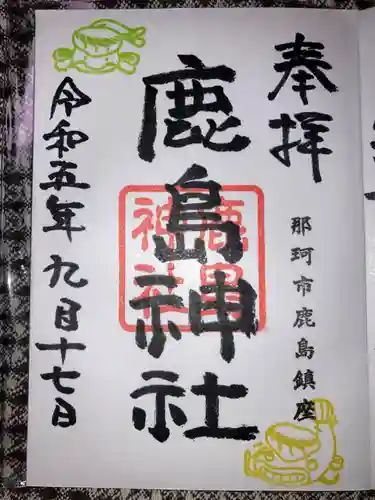 奉拝
那珂市鹿島鎮座
鹿島神社
鹿島
神社
令和五年九月十七日